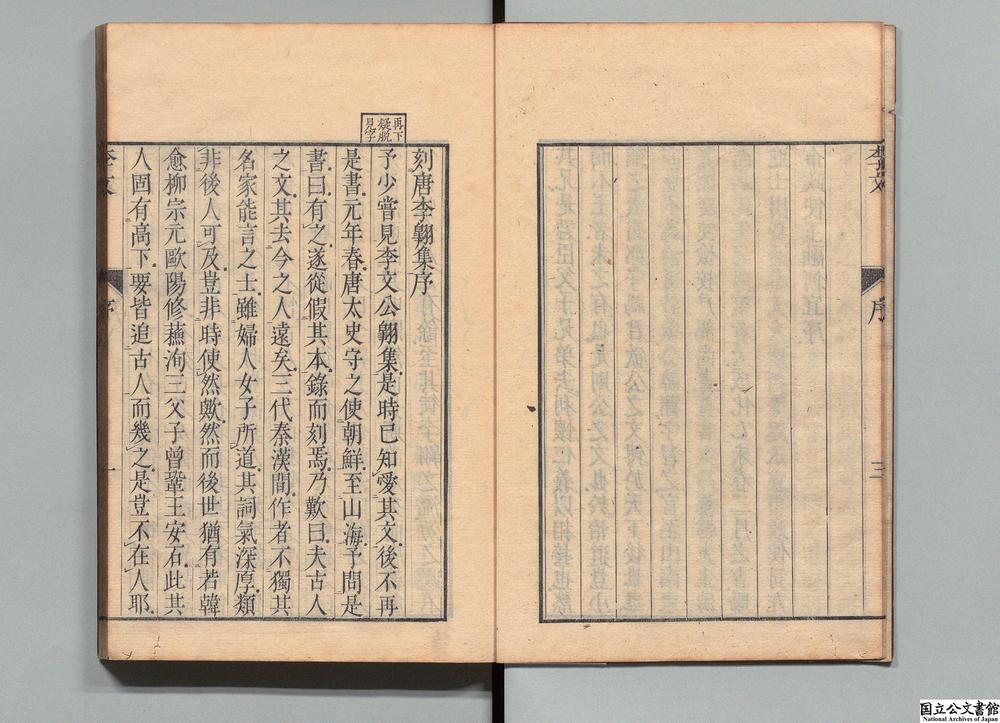 李文
序
三
再下
疑脱
見字
刻唐李翱集序
予少嘗見李文公翱集是時已知愛其文後不再
是書元年春唐太史守之使朝鮮至山海予問是
書曰有之遂從假其本錄而刻焉乃歎曰夫古人
之文其去今之人遠矣三代秦漢間作者不獨其
名家能言之士雖婦人女子所道其詞氣深厚類
非後人可及豈非時使然歟然而後世猶有若韓
愈柳宗元歐陽修蘇洵三父子曾鞏王安石此其
人固有高下要皆追古人而幾之是豈不在人耶
李文
序
一
国立公文書館
National Archives of Japan